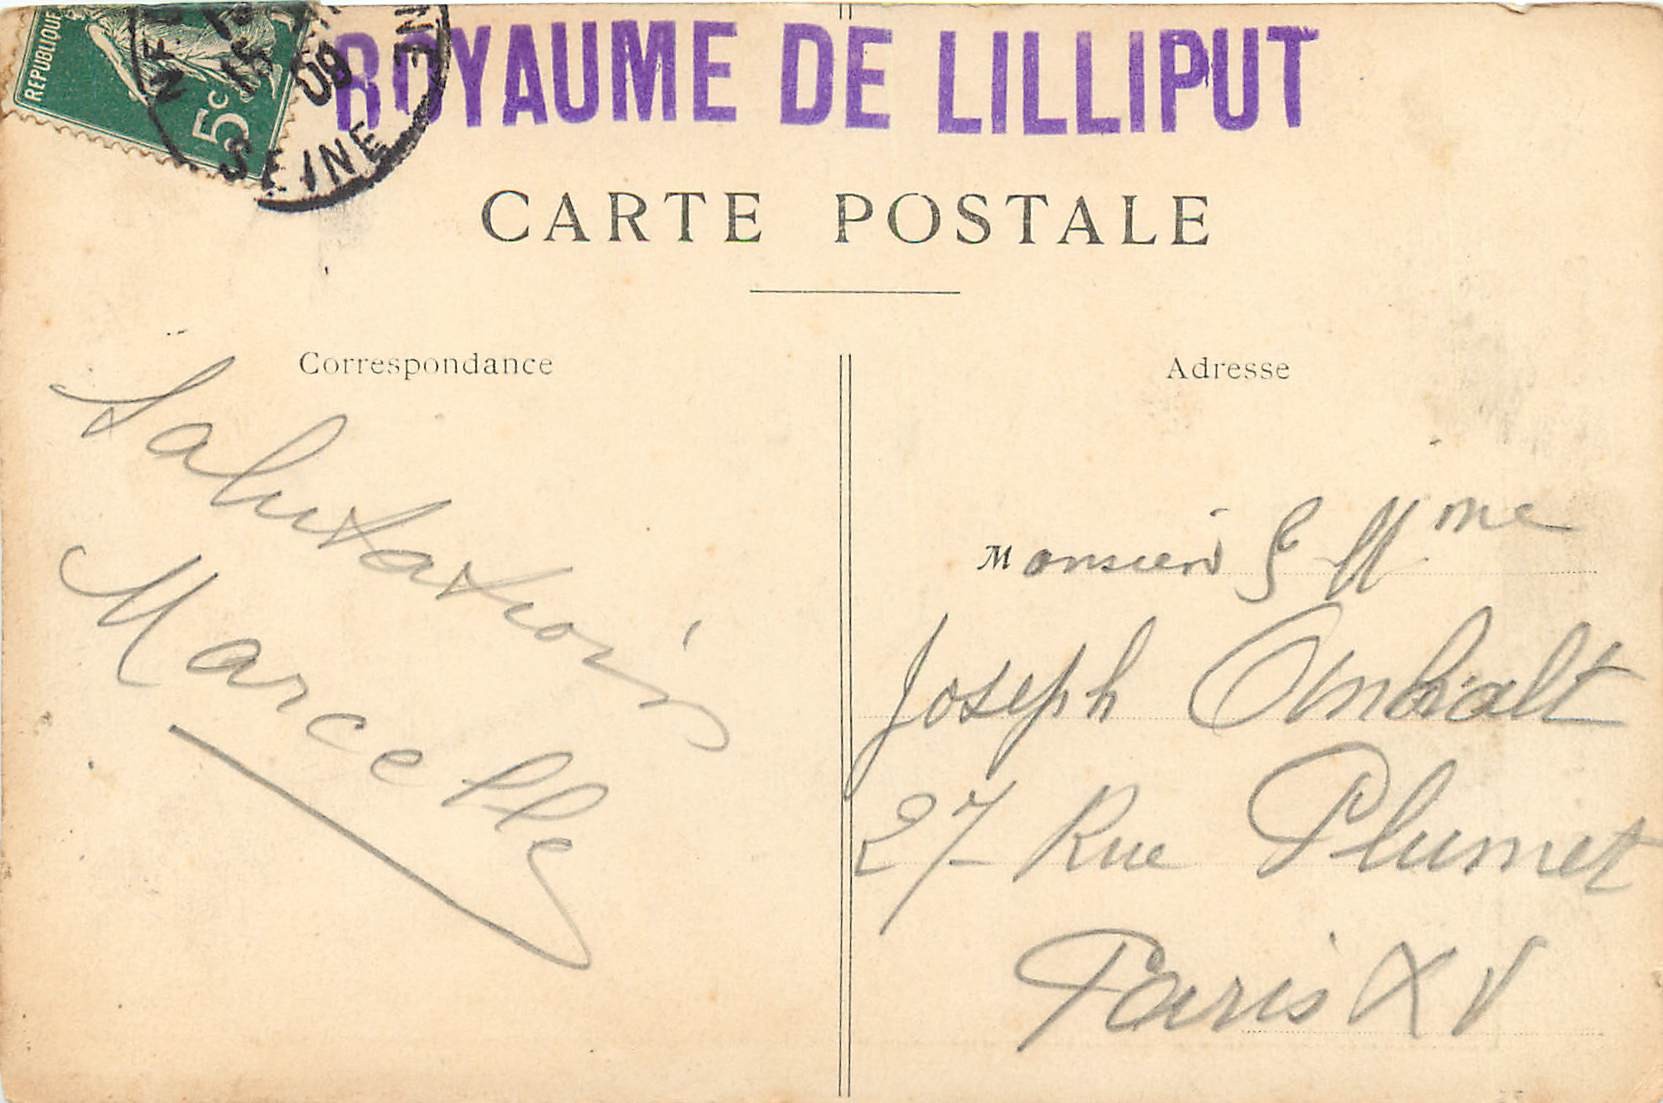 REPUBLIQUE
5c
SEINE
09
ROYAUME DE LILLIPUT
CARTE POSTALE
Correspondance
Salutations
Marcelle
Adresse
Monsieur & Mme
Joseph
27 Rue Plumet
Paris XV